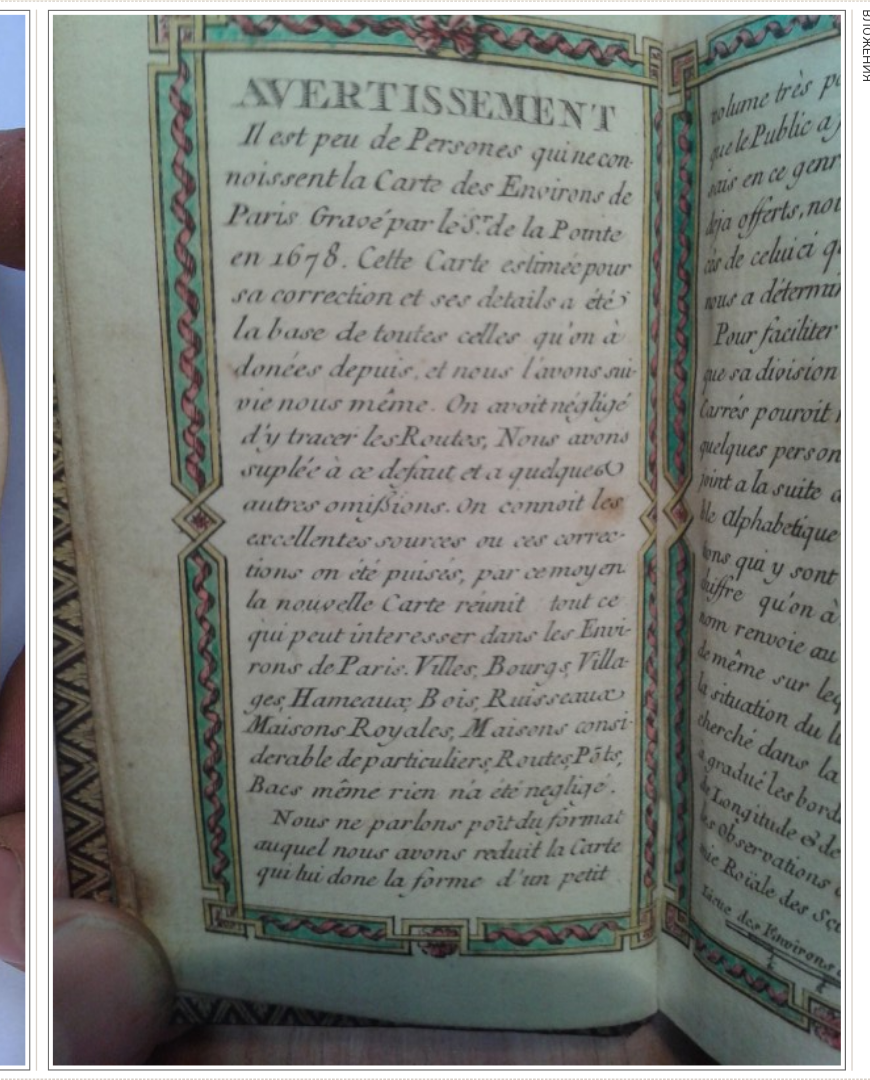 AVERTISSEMENT
Il est peu de Persones qui ne con-
noissent la Carte des Environs de
Paris Gravé par le Sr. de la Pointe
en 1678. Cette Carte estimée pour
sa correction et ses details a été
la base de toutes celles qu'on à
donées depuis, et nous l'avons sui-
vie nous même. On avoit négligé
d'y tracer les Routes, Nous avons
supléé à ce defaut et a quelques
autres omißions. On connoit les
excellentes sources ou ces correc-
tions on été puisés, par ce moyen
la nouvelle Carte réunit tout ce
qui peut interesser dans les Envi-
rons de Paris. Villes, Bourgs, Villa-
ges, Hameaux, Bois, Ruisseaux
Maisons Royales, Maisons consi-
derable de particuliers, Routes, Põts,
Bacs même rien n'a été negligé.
Nous ne parlons poĩt du format
auquel nous avons reduit la Carte
qui lui done la forme d'un petit
volume très
que le Public a
en ce genr
deja offerts, nou
de celui ci
nous a détermin
Pour faciliter
que sa division
Carrés pouroit
quelques person
joint a la suite
ble Alphabetique
ions qui y sont
chiffre qu'on à
nom renvoie au
de même sur
la situation du
cherché dans la
a gradué les bord
du Longitude & de
les Observations
mie Roïale des
Lieue des Environs
ВЛОЖЕНИЯ